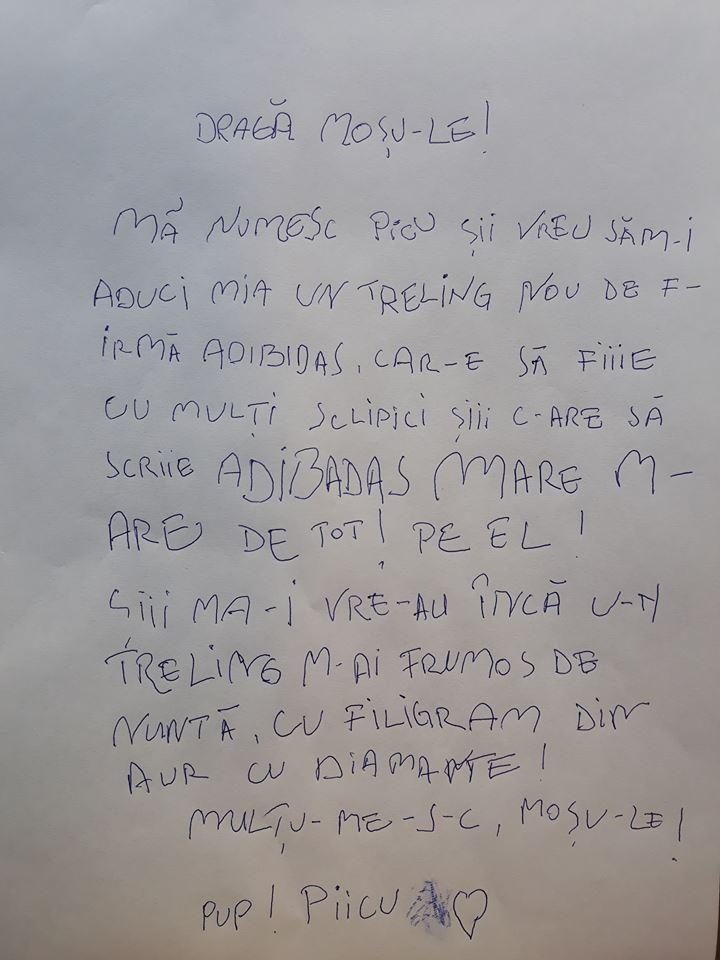 DRAGĂ MOȘU-LE!
MĂ NUMESC PICU ȘII VREU SĂM-I
ADUCI MIA UN TRELING NOU DE F-
IRMĂ ADIBIDAS, CAR-E SĂ FIIIE
CU MULȚI SCLIPICI ȘIII C-ARE SĂ
SCRIIE ADIBADAS MARE M-
ARE DE TOT! PE EL!
ȘIII MA-I VRE-AU ÎNCĂ U-N
TRELING M-AI FRUMOS DE
NUNTĂ, CU FILIGRAM DIN
AUR CU DIAMANTE!
MULȚU-ME-S-C, MOȘU-LE!
PUP! PIICU A♡